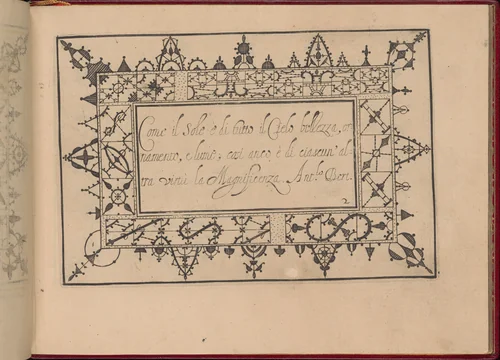 Come il Sole è di tutto il Cielo bellezza, or
namento, e lume; così anco è di ciascun' al
tra virtù la Magnificenza. Ant.º Beri.
2